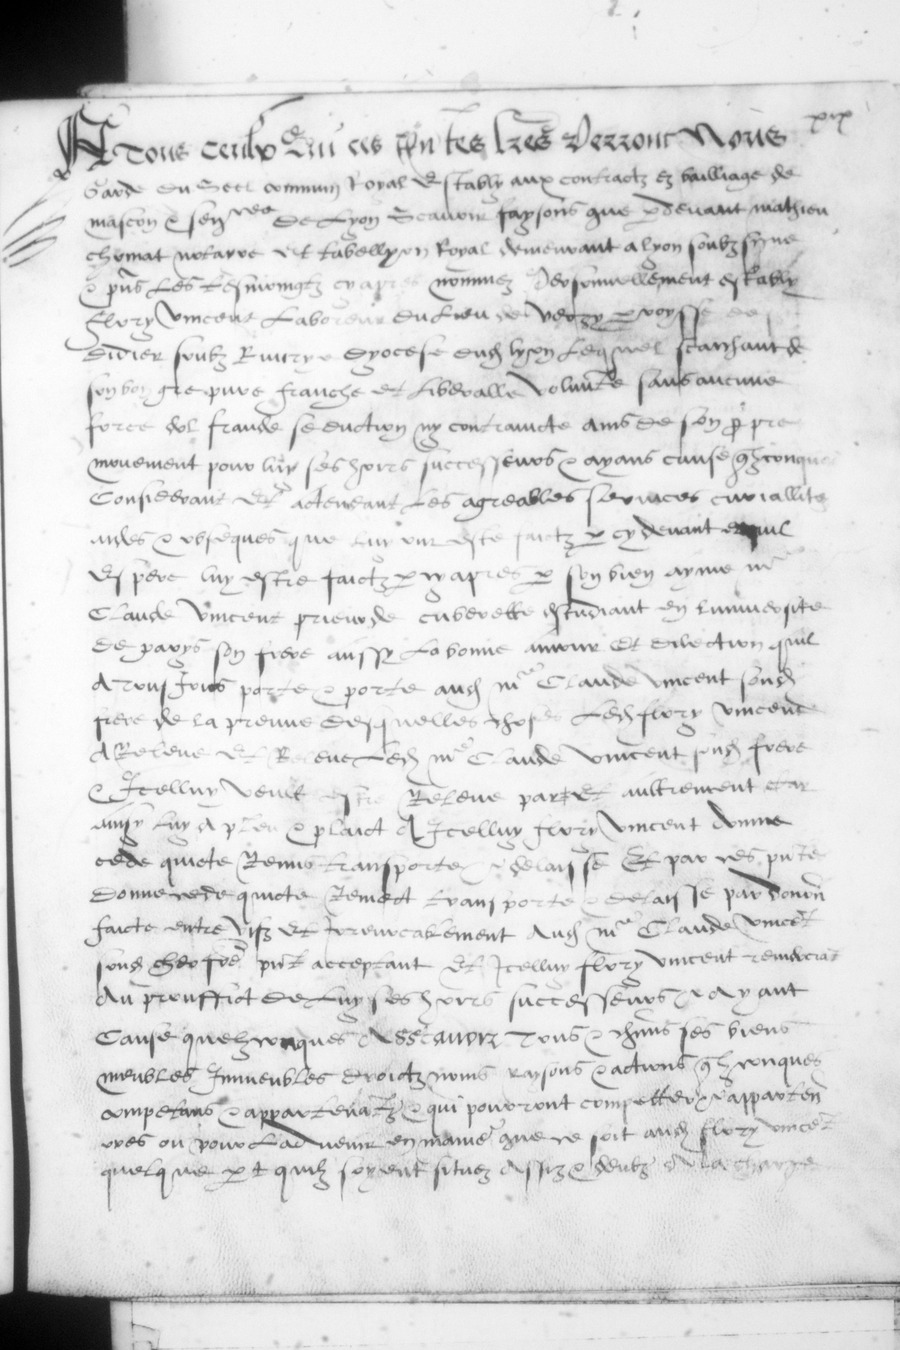 xix
A Tous ceulx Qui ces pntes lres Verront Nous
Garde du Seel commun Royal Estably aux contractz ez bailliage de
mascon & sen^ree de Lyon Scavoir faysons que p devant mathieu
chomat notayre et tabellyon Royal demeurant a lyon soubz signe
& pns Les tesmoingtz cy apres nommez Personnellement estably
flory vincent Laboreur du lieu de paroysse de
didier soubz Rivery & dyocese dud lyon Lequel scaichant de
son bon gre pure franche et Liberalle volunte sans aucune
force dol fraude seduction ny contraincte ains de son propre
mouvement pour luy ses hoirs successeurs & ayans cause qhconques
Considerant Et actendant Les agreables services curiallite
aydes & obseques que luy ont este faictz p cy devant et quil
Espere luy estre faictz p cy apres p son bien ayme m^re
Claude vincent prieur de estudiant en luniversite
de parys son frere aussy La bonne amour et dilection quil
A tousjours porte & porte aud m^re Claude vincent sond
frere de la preuve desquelles choses Led flory vincent
A Releve et Releve Led m^re Claude vincent sond frere
& Icelluy veult estre Releve par et aultrement car
ainsy luy A pleu & plaict A Icelluy flory vincent donne
cede quicte Remis transporte & delaisse Et par ces pntes
donne cede quicte Remect transporte & delaisse par donaon
faicte entre vifz et Irrevocablement Aud m^re Claude vincet
sond frere pnt acceptant et Icelluy flory vincent remerciat
Au prouffict de Luy ses hoirs successeurs & Ayant
Cause quelzconques Assavoir Tous & chuns ses biens
meubles Immeubles droictz noms raysons & actions qhconques
competans & appartenatz & qui pourront compecter & apparten
ores ou pour Ladvenir en manie que ce soit aud flory vincet
quelque pt quilz soyent situez Assiz &